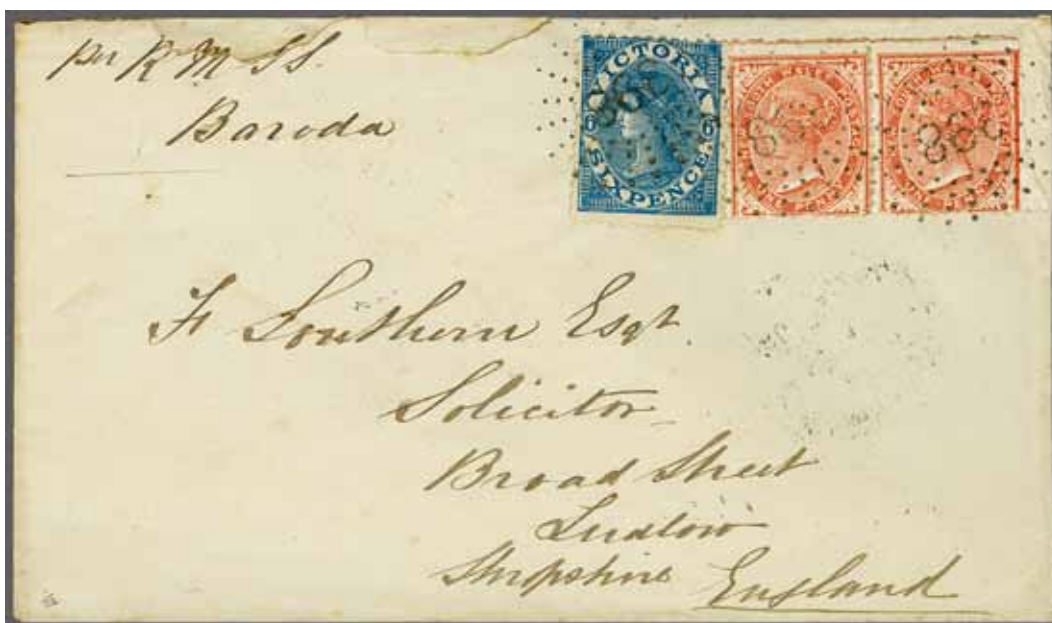 per R M SS.
Baroda
VICTORIA
6 6
SIXPENCE
SOUTH WALES POSTAGE
ONE PENNY
SOUTH WALES POSTAGE
ONE PENNY
88
F Southern Esqr
Solicitor
Broad Street
Ludlow
Shropshire England